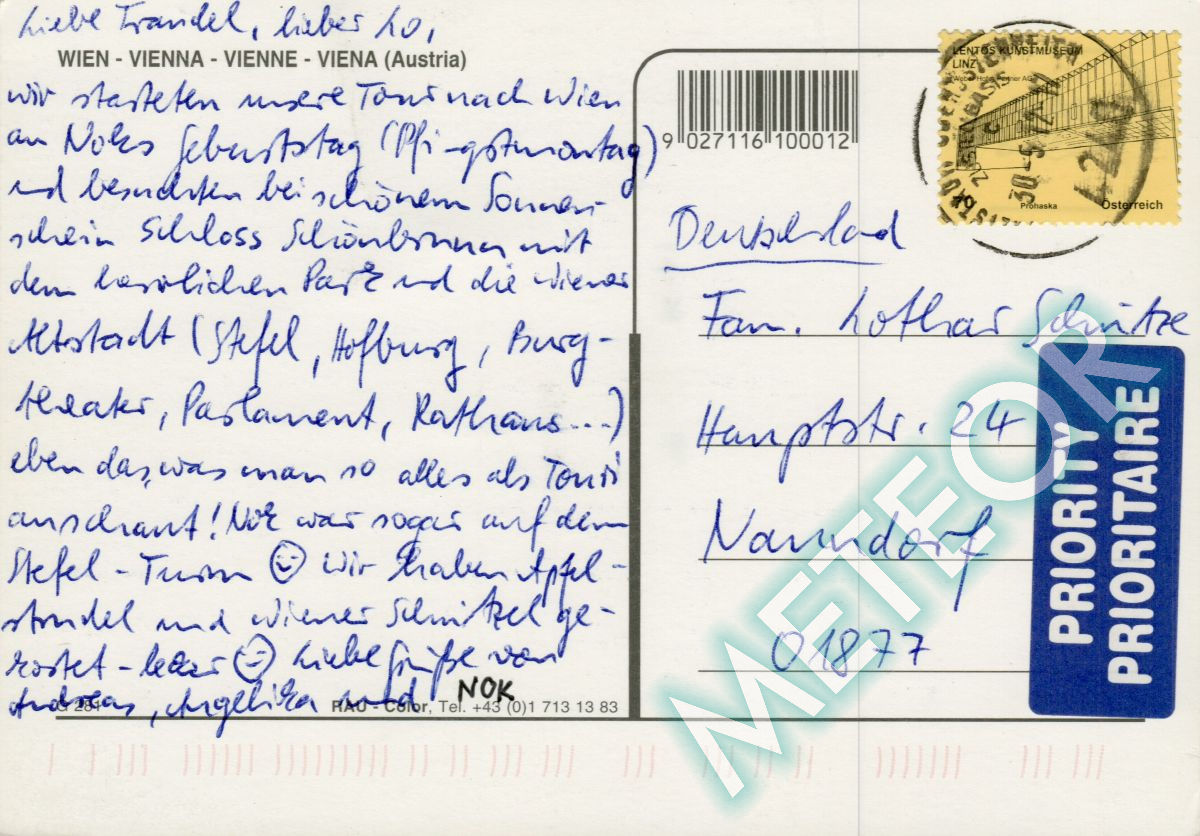 Liebe Traudel, lieber Lo,
WIEN - VIENNA - VIENNE - VIENA (Austria)
wir starteten unsere Tour nach Wien
an Noks Geburtstag (Pfingstmontag)
und besuchten bei schönem Sonnen-
schein Schloss Schönbrunn mit
dem herrlichen Park und die Wiener
Altstadt (Stefel, Hofburg, Burg-
theater, Parlament, Rathaus...)
eben das, was man so alles als Touri
anschaut! Nok war sogar auf dem
Stefel-Turm ☺ Wir haben Apfel-
strudel und Wiener Schnitzel ge-
kostet - lecker ☺ Liebe Grüße von
Andreas, Angelika und NOK
RAU - Color, Tel. +43 (0)1 713 13 83
9 027116 100012
LENTOS KUNSTMUSEUM
LINZ
Weber Hofer Partner AG
Prohaska
Österreich
Deutschland
Fam. Lothar Schütze
Hauptstr. 24
Naundorf
01877
PRIORITY
PRIORITAIRE
METEOR